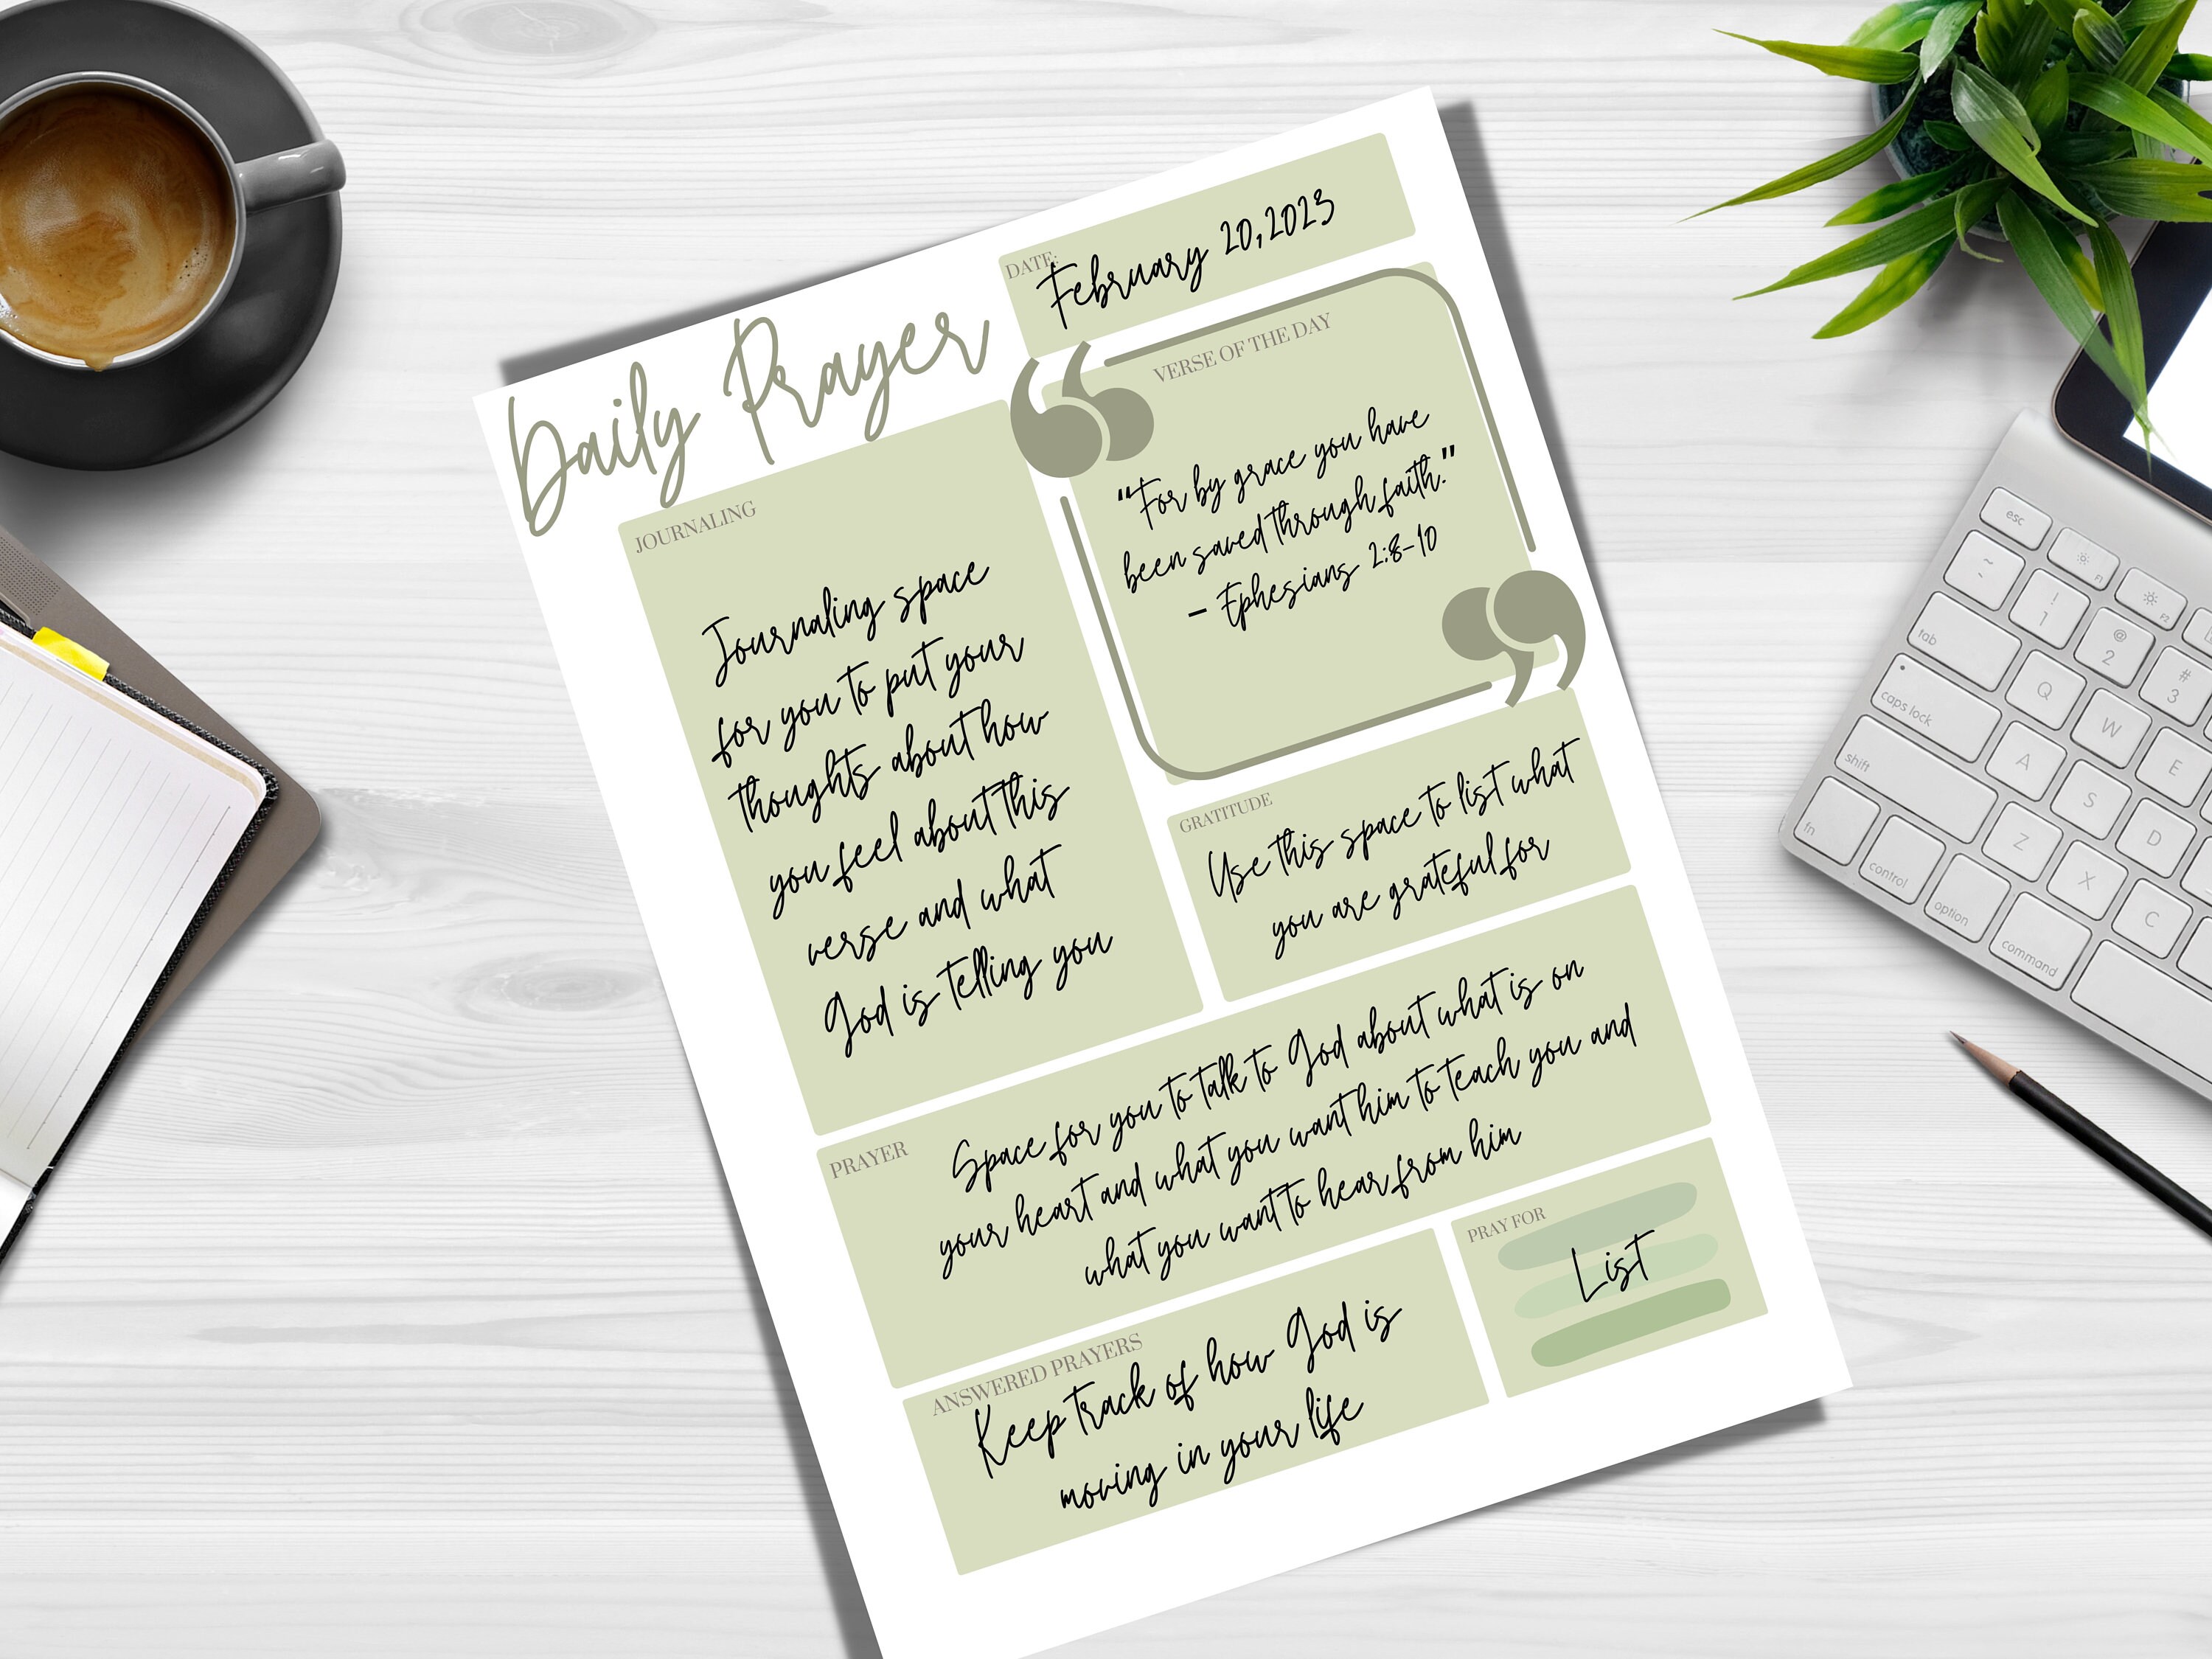 Daily Prayer
DATE:
February 20, 2023
VERSE OF THE DAY
“For by grace you have
been saved through faith.”
- Ephesians 2:8-10
JOURNALING
Journaling space
for you to put your
thoughts about how
you feel about this
verse and what
God is telling you
GRATITUDE
Use this space to list what
you are grateful for
PRAYER
Space for you to talk to God about what is on
your heart and what you want him to teach you and
what you want to hear from him
ANSWERED PRAYERS
Keep track of how God is
moving in your life
PRAY FOR
List
esc
F1
F2
~
!
1
@
2
#
3
tab
Q
W
E
caps lock
A
S
D
shift
Z
X
C
fn
control
option
command